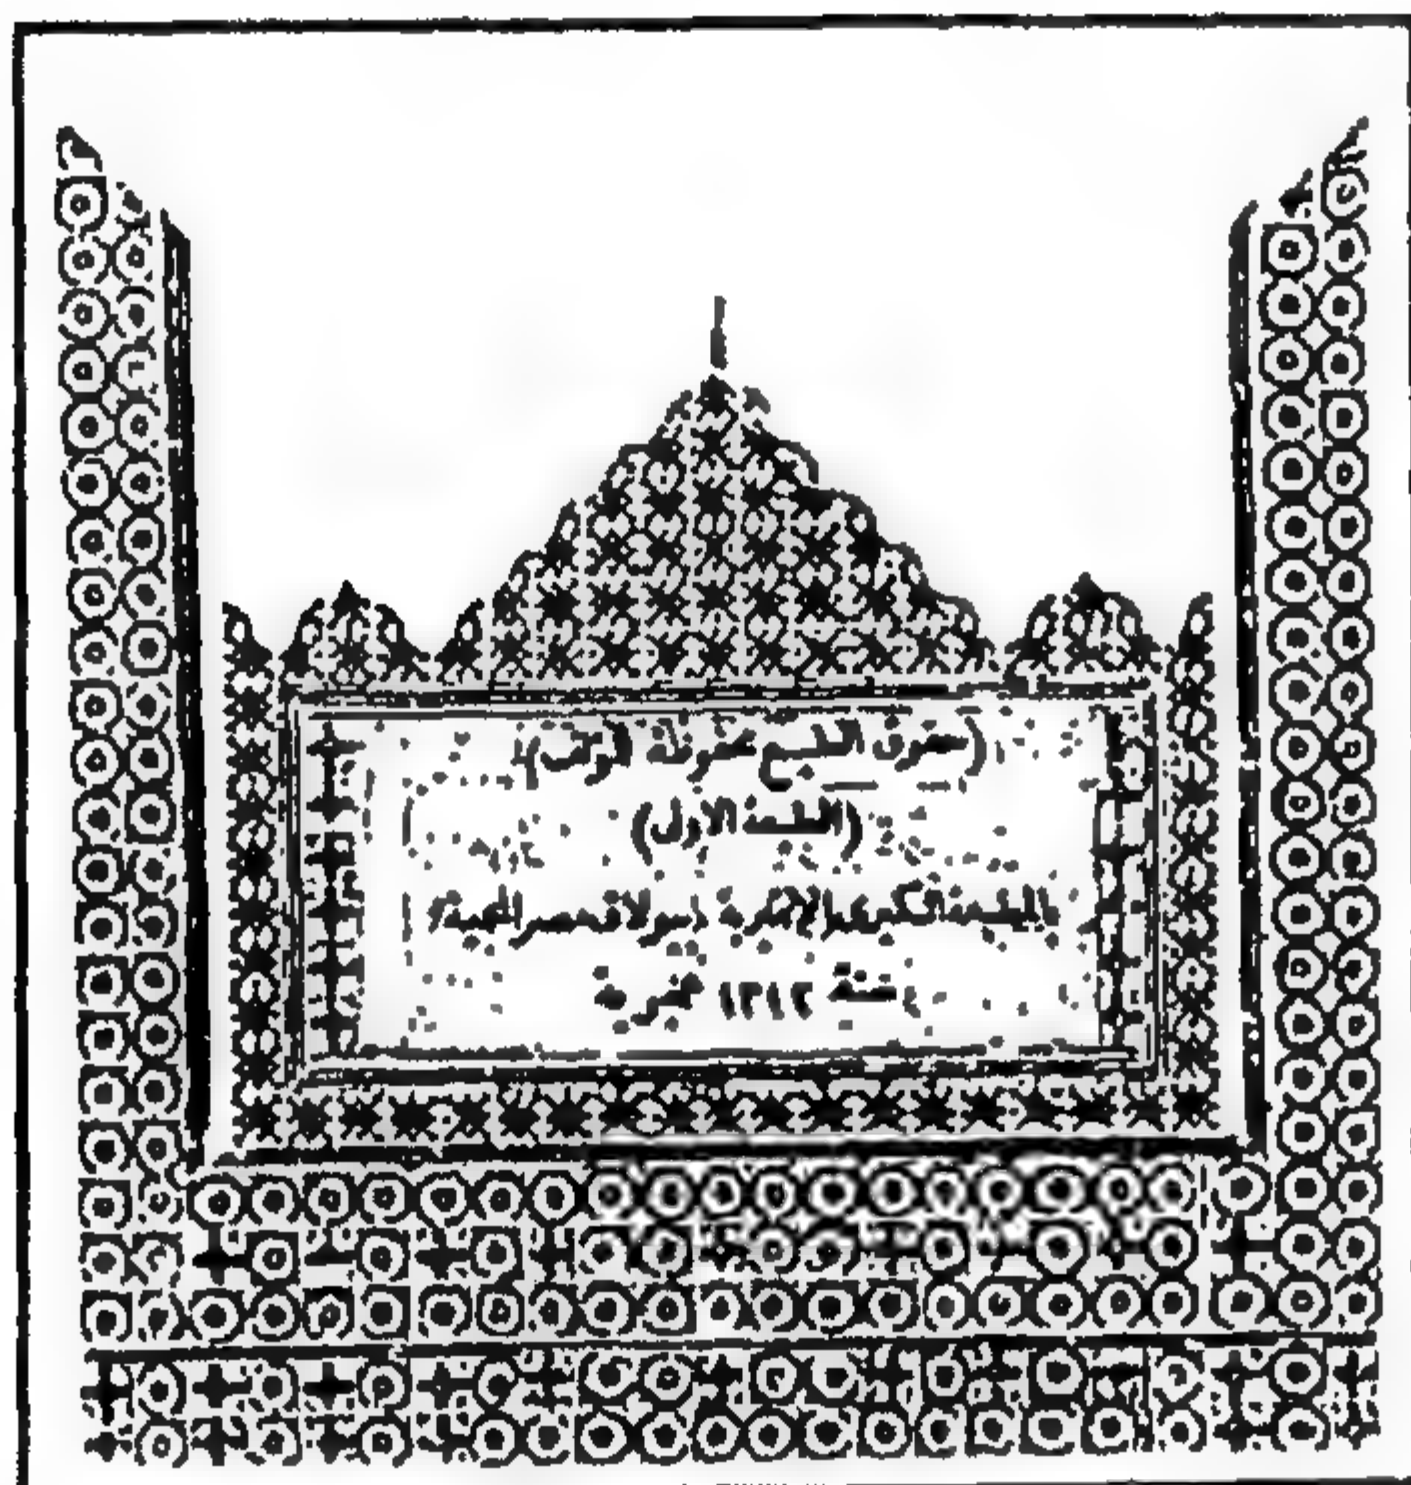 (حقوق الطبع محفوظة للمؤلف)
(الطبعة الاولى)
بالمطبعة الكبرى الاميرية ببولاق مصر المحمية
سنة ١٣١٢ هجرية